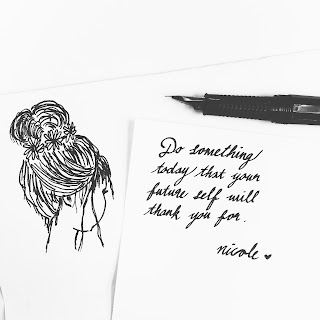 Do something
today that your
future self will
thank you for.
nicole ♥